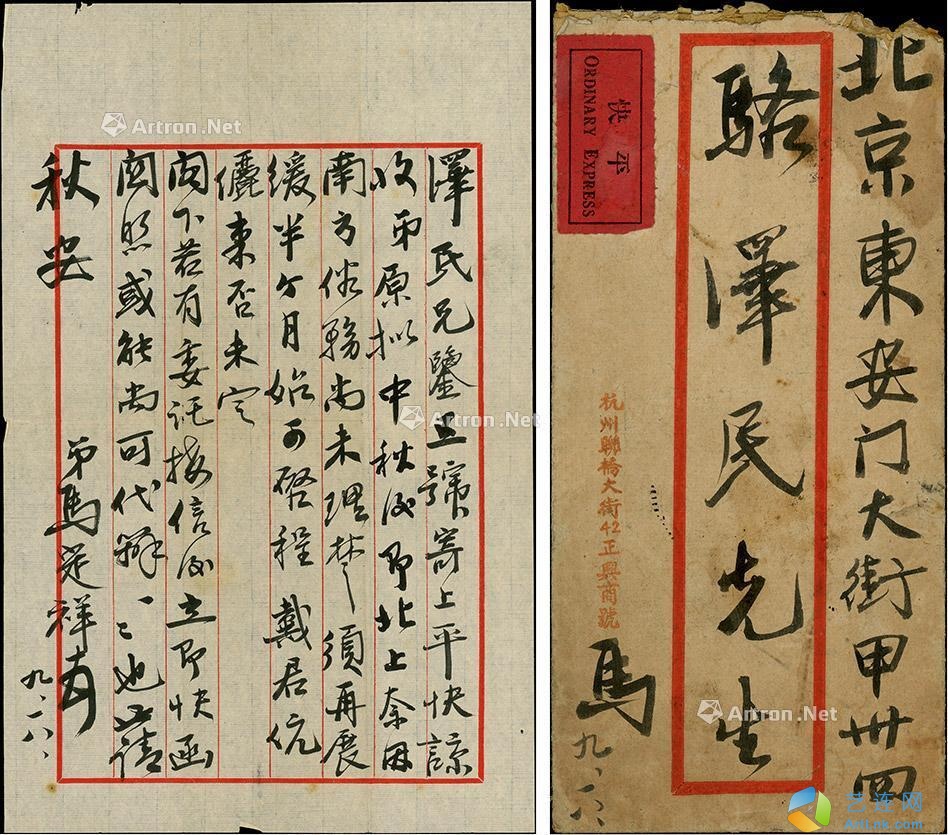 澤民兄鑒五號寄上平快諒
收弟原拟中秋後即北上奈因
南方俗務尚未理楚須再展
緩半个月始可啓程戴君伉
儷來否未定
阁下若有委託接信後立即快函
關照或能尚可代辦一二也此請
秋安
弟馬定祥
九、一八、
北京東安门大街甲卅四
駱澤民先生
杭州聯橋大街42正興商號
馬
九、一八
快平
ORDINARY EXPRESS
Artron.Net
Artron.Net
Artron.Net
艺连网